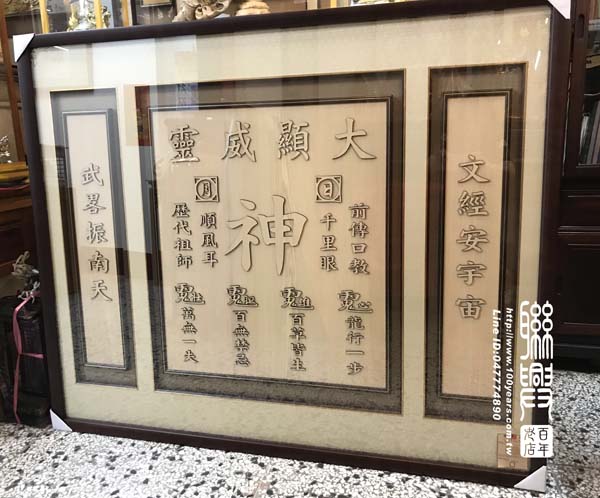 大顯威靈
文經安宇宙
武畧振南天
神
日
月
前傳口教
千里眼
順風耳
歷代祖師
龍行一步
百草皆生
百無禁忌
萬無一失
http://www.100years.com.tw
Line ID:047774890
百年老店